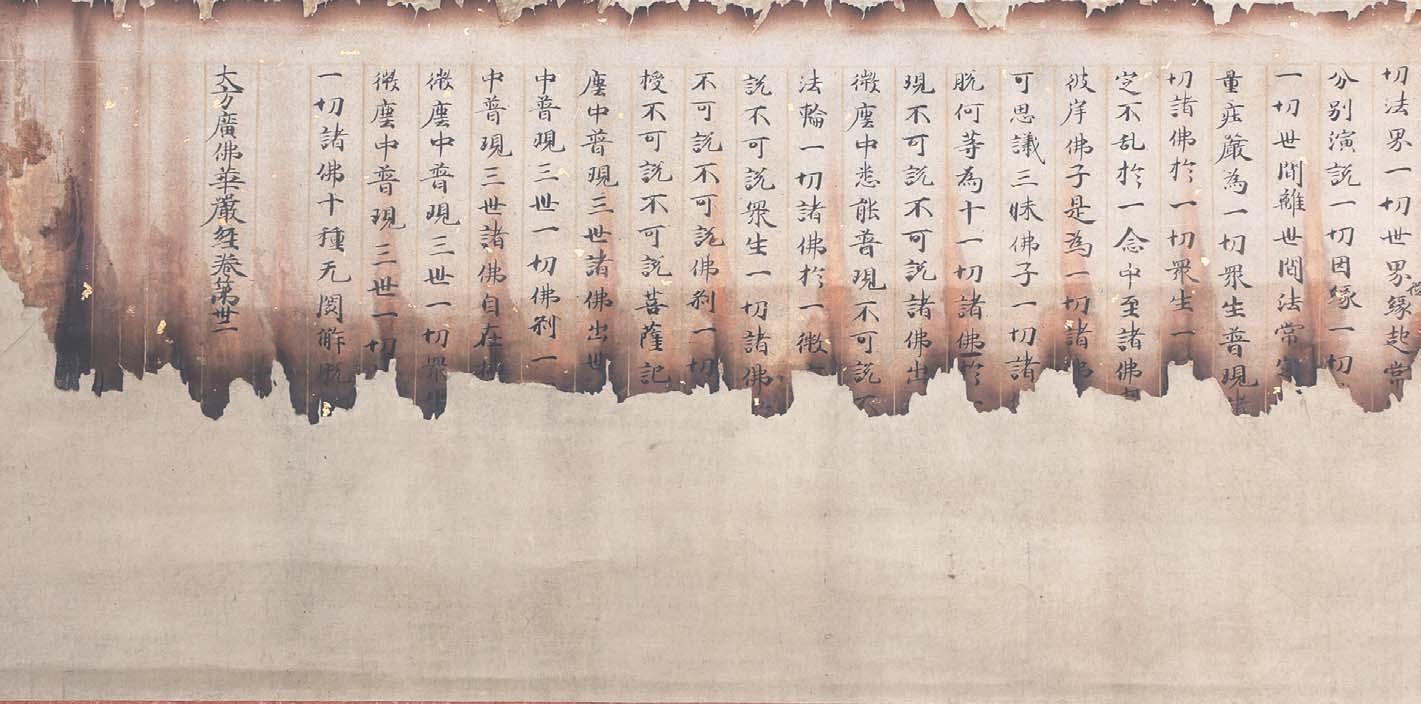 切法界一切世界緣起常
分別演說一切因緣一切
一切世間離世間法常定
量疘嚴為一切眾生普現
定不乱於一念中至諸佛
切諸佛於一切眾生一
彼岸佛子是為一切諸佛
可思議三昧佛子一切諸
脫何等為十一切諸佛於
現不可說不可說諸佛出
微塵中悉能普現不可說不
法輪一切諸佛於一微
說不可說眾生一切諸佛
不可說不可說佛刹一切
授不可說不可說菩薩記
塵中普現三世諸佛出世
中普現三世一切佛刹一
中普現三世諸佛自在
微塵中普現三世一切眾生
微塵中普現三世一切
一切諸佛十種无閡解脫
大方廣佛華嚴經卷第卅二